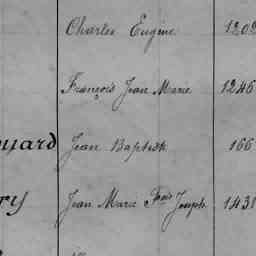 Charles Eugène 1202
François Jean Marie 1246
uyard Jean Baptiste 166
ry Jean Marie Fçois Joseph 1431